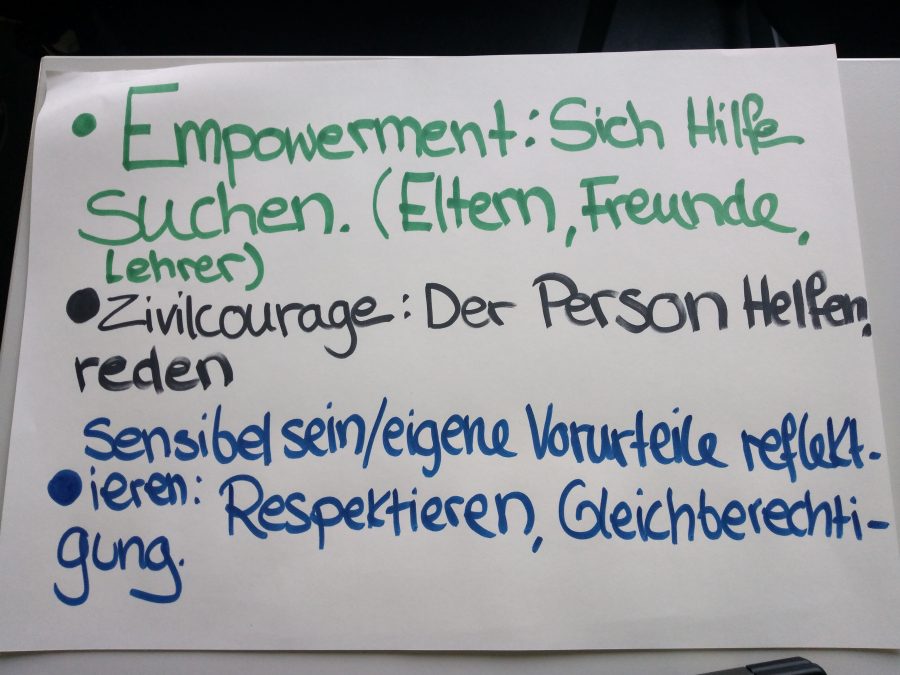 • Empowerment: Sich Hilfe
suchen. (Eltern, Freunde,
Lehrer)
• Zivilcourage: Der Person Helfen,
reden
Sensibel sein/eigene Vorurteile reflekt-
• ieren: Respektieren, Gleichberechti-
gung.